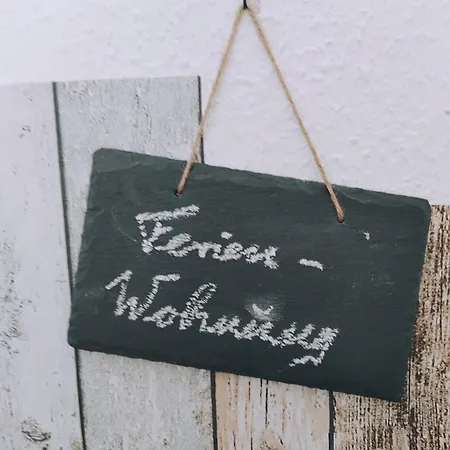 Ferien -
Wohnung